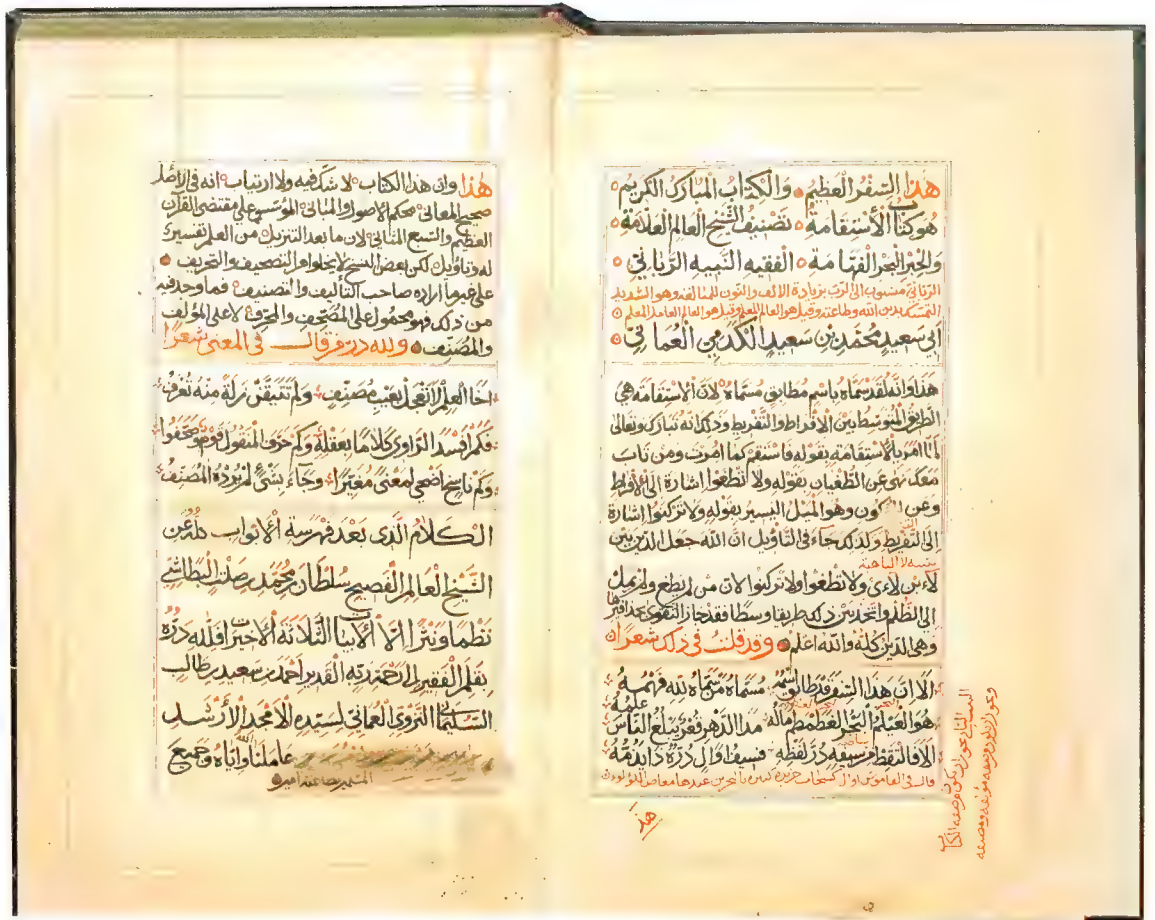 هذا السفر العظيم والكتاب المبارك الكريم
هو كتاب الأستقامة تصنيف الشيخ العالم العلامة
والحبر البحر الفهامة الفقيه النبيه الرباني
الرباني منسوب الى الرب بزيادة الالف والنون للمبالغة وهو الشديد
التمسك بدين الله وطاعته وقيل هو العالم المعلم وقيل هو العالم العامل المعلم
ابي سعيد محمد بن سعيد الكدمي العماني
هذا وانه لقد سماه باسم مطابق مسماه لان الاستقامة هي
الطريق المتوسط بين الافراط والتفريط وذلك انه تبارك وتعالى
لما امر بالاستقامة بقوله فاستقم كما امرت ومن تاب
معك نهى عن الطغيان بقوله ولا تطغوا اشارة الى الافراط
وعن الركون وهو الميل اليسير بقوله ولا تركنوا اشارة
الى التفريط ولذلك جاء في التأويل ان الله جعل الدين بين
لاءين لاء ولا تطغوا ولا تركنوا لان من لم يطغ ولم يمل
الى الظلم واتخذ بين ذلك طريقا وسطا فقد حاز التقوى
وهي الدين كله والله اعلم وقد قلت في ذلك شعرا
الا ان هذا السفر قد طابق اسمه مسماه من سماه لله فهمه
هو العيلم البحر الغطمطم ماله مدا الدهر قعر يبلغ الناس علمه
الا فالتقط من سيفه در لفظه فسيف اوال دره
قال في القاموس اوال كسحاب جزيرة كبيرة بالبحرين عندها مغاص اللؤلؤ
هذا
هذا وان هذا الكتاب لا شك فيه ولا ارتياب انه في الاصل
صحيح المعاني محكم الاصول والمباني المؤسس على مقتضى القرآن
العظيم والسبع المثاني لان ما بعد التنزيل من العلم تفسير
له وتأويل لكن بعض النسخ لا يخلوا من التصحيف والتحريف
على غير ما اراده صاحب التأليف والتصنيف فما وجد فيه
من ذلك فهو محمول على المصحف والمحرف لا على المؤلف
والمصنف ولله در من قال في المعنى شعرا
اخا العلم لا تعجل بعيب مصنف ولم تتيقن زلة منه تعرف
فكم افسد الراوي كلاما بعقله وكم حرف المنقول قوم وصحفوا
وكم ناسخ اضحى لمعنى مغيرا وجاء بشئ لم يرده المصنف
الكلام الذي بعد فهرسة الأبواب عن
الشيخ العالم الفصيح سلطان بن محمد بن صلت البطاشي
نظما ونثرا الا الأبيات الثلاثة الأخيرات فلله دره
بقلم الفقير الى رحمة ربه القدير احمد بن سعيد بن طالب
السليماني النزوي العماني لسيده الامجد الارشد
عاملنا الله واياه وجميع